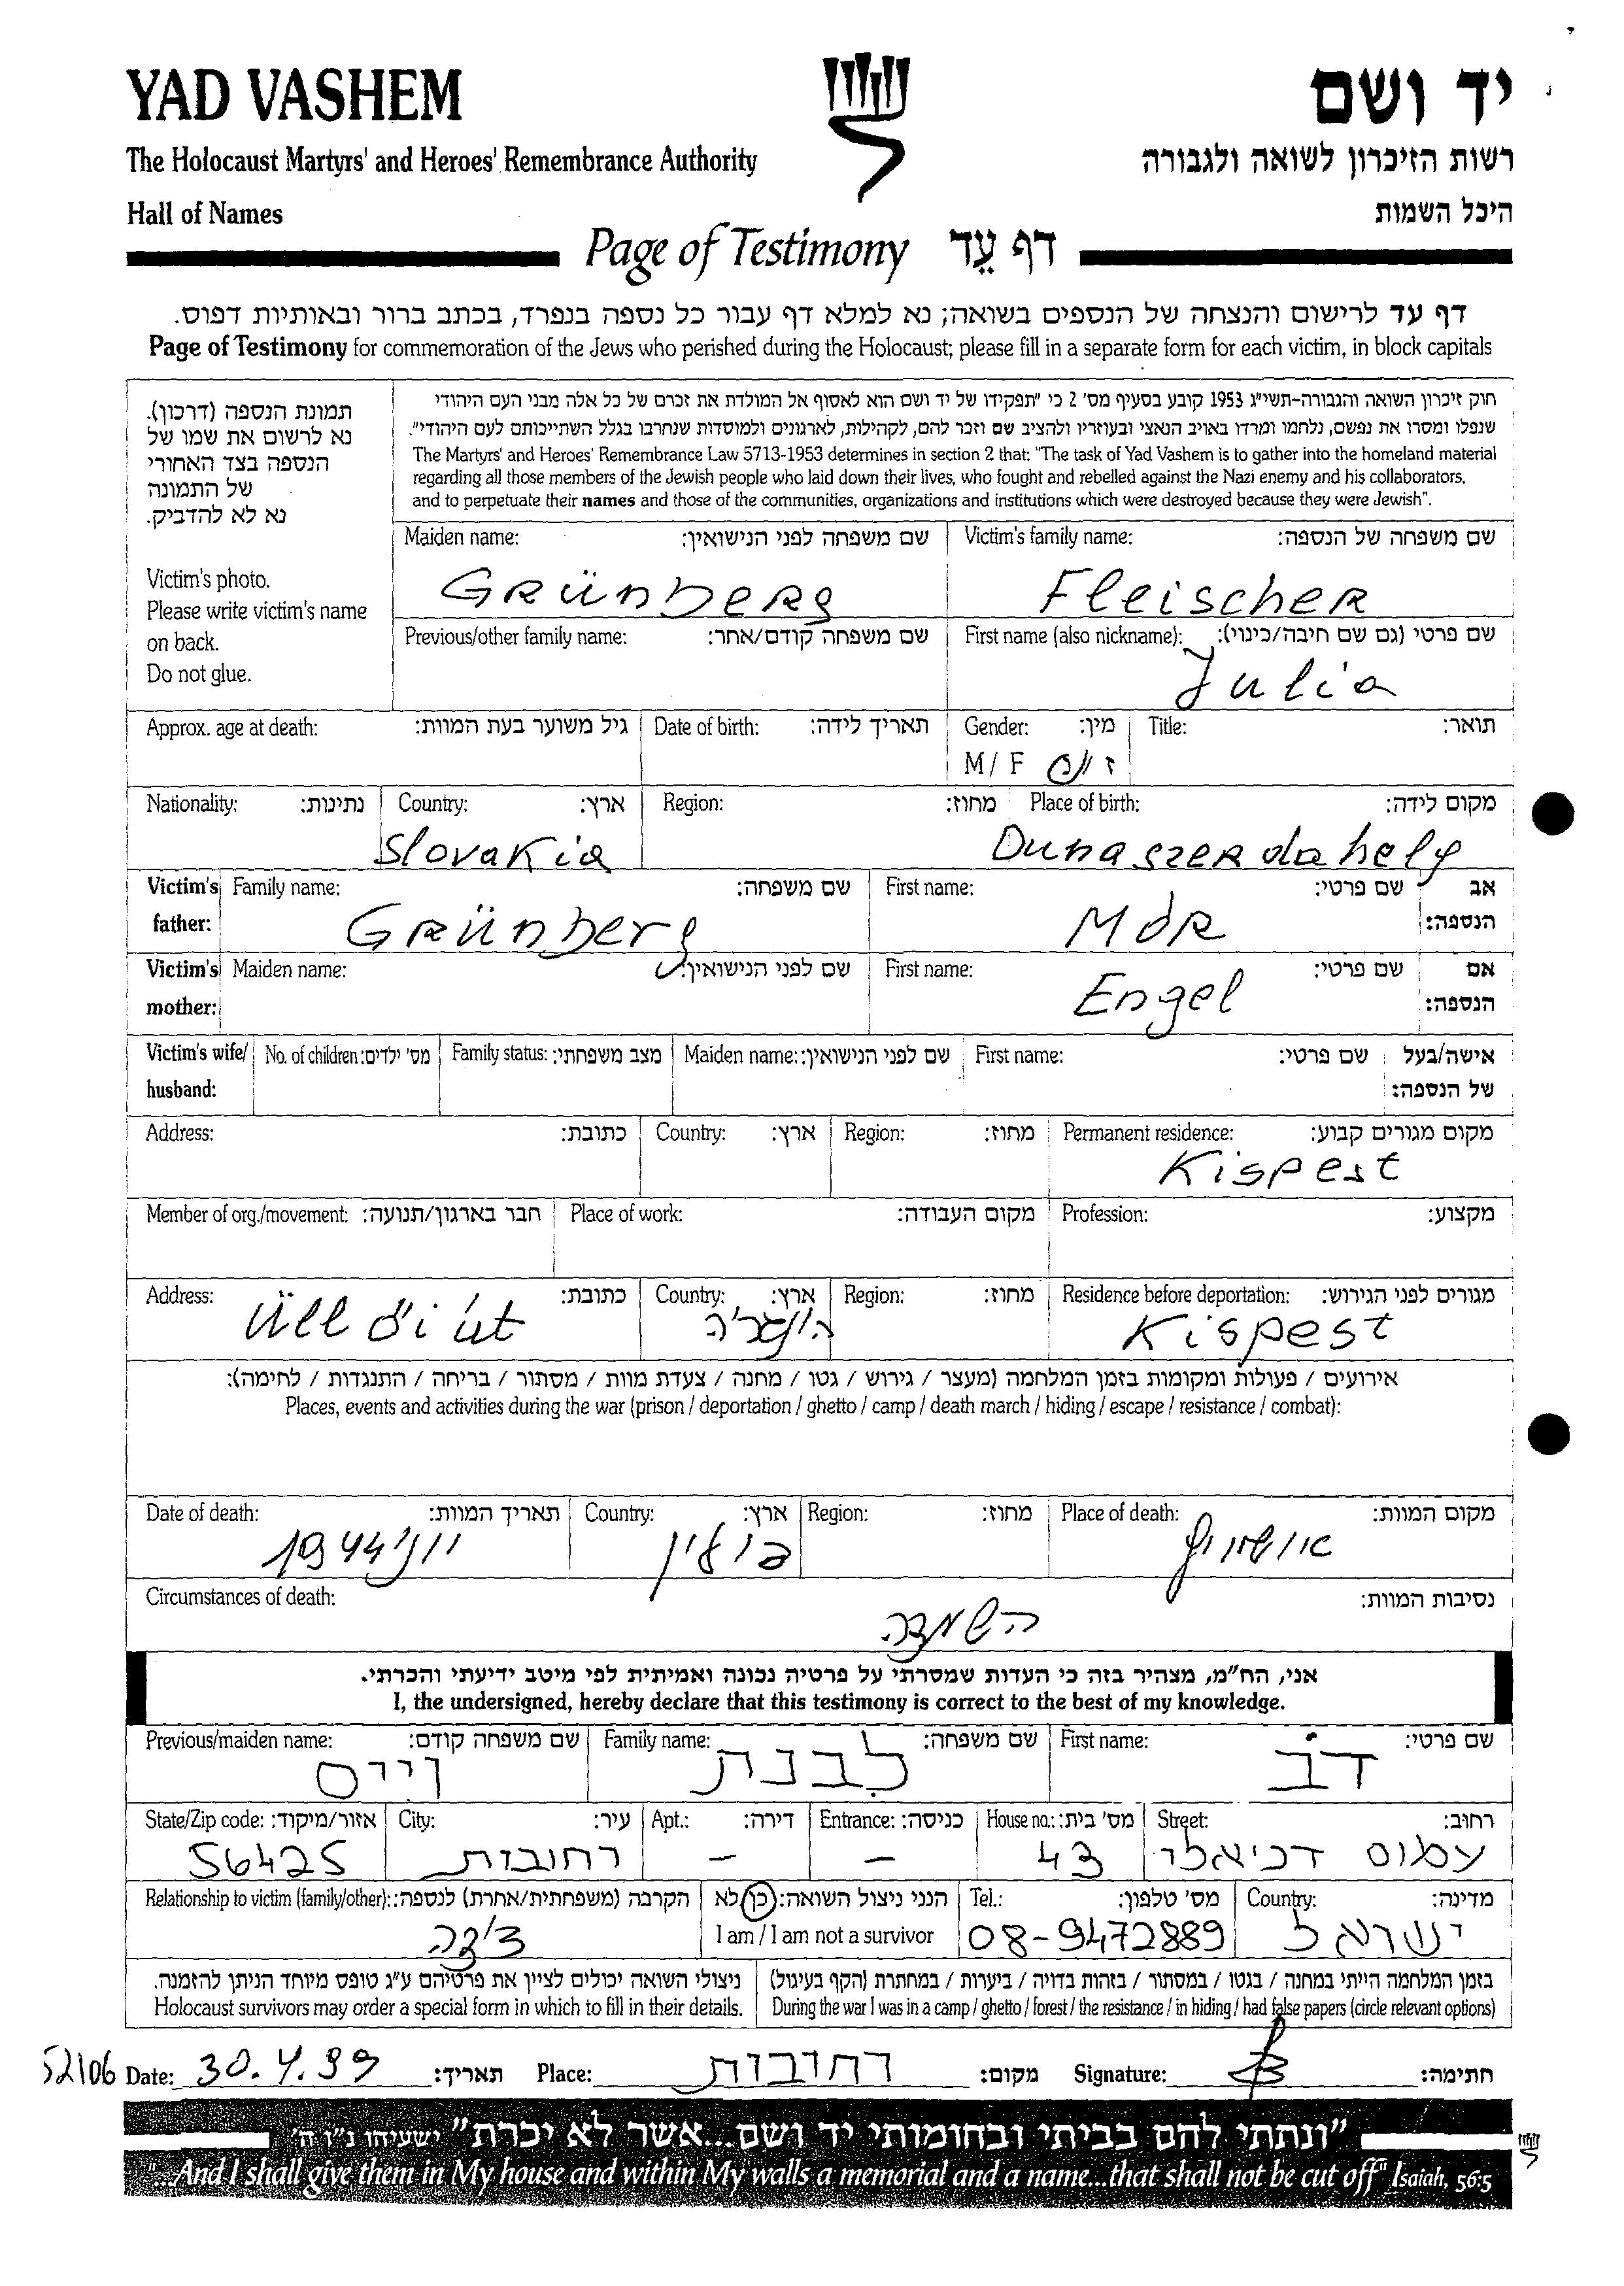 YAD VASHEM
יד ושם
The Holocaust Martyrs' and Heroes' Remembrance Authority
רשות הזיכרון לשואה ולגבורה
Hall of Names
היכל השמות
Page of Testimony דף עֵד
דף עד לרישום והנצחה של הנספים בשואה; נא למלא דף עבור כל נספה בנפרד, בכתב ברור ובאותיות דפוס.
Page of Testimony for commemoration of the Jews who perished during the Holocaust; please fill in a separate form for each victim, in block capitals
תמונת הנספה (דרכון).
נא לרשום את שמו של
הנספה בצד האחורי
של התמונה
נא לא להדביק.
Victim's photo.
Please write victim's name
on back.
Do not glue.
חוק זיכרון השואה והגבורה-תשי"ג 1953 קובע בסעיף מס' 2 כי "תפקידו של יד ושם הוא לאסוף אל המולדת את זכרם של כל אלה מבני העם היהודי
שנפלו ומסרו את נפשם, נלחמו ומרדו באויב הנאצי ובעוזריו ולהציב שם וזכר להם, לקהילות, לארגונים ולמוסדות שנחרבו בגלל השתייכותם לעם היהודי".
The Martyrs' and Heroes' Remembrance Law 5713-1953 determines in section 2 that: "The task of Yad Vashem is to gather into the homeland material
regarding all those members of the Jewish people who laid down their lives, who fought and rebelled against the Nazi enemy and his collaborators,
and to perpetuate their names and those of the communities, organizations and institutions which were destroyed because they were Jewish".
Maiden name: שם משפחה לפני הנישואין: Victim's family name: שם משפחה של הנספה:
Grünberg Fleischer
Previous/other family name: שם משפחה קודם/אחר: First name (also nickname): שם פרטי (גם שם חיבה/כינוי):
Julia
Approx. age at death: גיל משוער בעת המוות: Date of birth: תאריך לידה: Gender: מין: Title: תואר:
M / F ז /
Nationality: נתינות: Country: ארץ: Region: מחוז: Place of birth: מקום לידה:
Slovakia Dunaszerdahely
Victim's father: Family name: שם משפחה: First name: שם פרטי: אב הנספה:
Grünberg Mór
Victim's mother: Maiden name: שם לפני הנישואין: First name: שם פרטי: אם הנספה:
Engel
Victim's wife/ husband: No. of children: מס' ילדים: Family status: מצב משפחתי: Maiden name: שם לפני הנישואין: First name: שם פרטי: אישה/בעל של הנספה:
Address: כתובת: Country: ארץ: Region: מחוז: Permanent residence: מקום מגורים קבוע:
Kispest
Member of org./movement: חבר בארגון/תנועה: Place of work: מקום העבודה: Profession: מקצוע:
Address: כתובת: Country: ארץ: Region: מחוז: Residence before deportation: מגורים לפני הגירוש:
Üllői út הונגריה Kispest
אירועים / פעולות ומקומות בזמן המלחמה (מעצר / גירוש / גטו / מחנה / צעדת מוות / מסתור / בריחה / התנגדות / לחימה):
Places, events and activities during the war (prison / deportation / ghetto / camp / death march / hiding / escape / resistance / combat):
Date of death: תאריך המוות: Country: ארץ: Region: מחוז: Place of death: מקום המוות:
יוני 1944 פולין אושוויץ
Circumstances of death: נסיבות המוות:
השמדה
אני, הח"מ, מצהיר בזה כי העדות שמסרתי על פרטיה נכונה ואמיתית לפי מיטב ידיעתי והכרתי.
I, the undersigned, hereby declare that this testimony is correct to the best of my knowledge.
Previous/maiden name: שם משפחה קודם: Family name: שם משפחה: First name: שם פרטי:
וייס לבנת דב
State/Zip code: אזור/מיקוד: City: עיר: Apt.: דירה: Entrance: כניסה: House no.: מס' בית: Street: רחוב:
56425 רחובות – – 43 עמוס דניאלי
Relationship to victim (family/other): הקרבה (משפחתית/אחרת) לנספה: הנני ניצול השואה: כן לא Tel.: מס' טלפון: Country: מדינה:
I am / I am not a survivor
08-9472889 ישראל
ניצולי השואה יכולים לציין את פרטיהם ע"ג טופס מיוחד הניתן להזמנה. בזמן המלחמה הייתי במחנה / בגטו / במסתור / בזהות בדויה / ביערות / במחתרת (הקף בעיגול)
Holocaust survivors may order a special form in which to fill in their details. During the war I was in a camp / ghetto / forest / the resistance / in hiding / had false papers (circle relevant options)
52106 Date: 30.4.99 תאריך: Place: רחובות מקום: Signature: חתימה:
"ונתתי להם בביתי ובחומותי יד ושם...אשר לא יכרת" ישעיהו נ"ו ה'
"...And I shall give them in My house and within My walls a memorial and a name...that shall not be cut off" Isaiah, 56:5